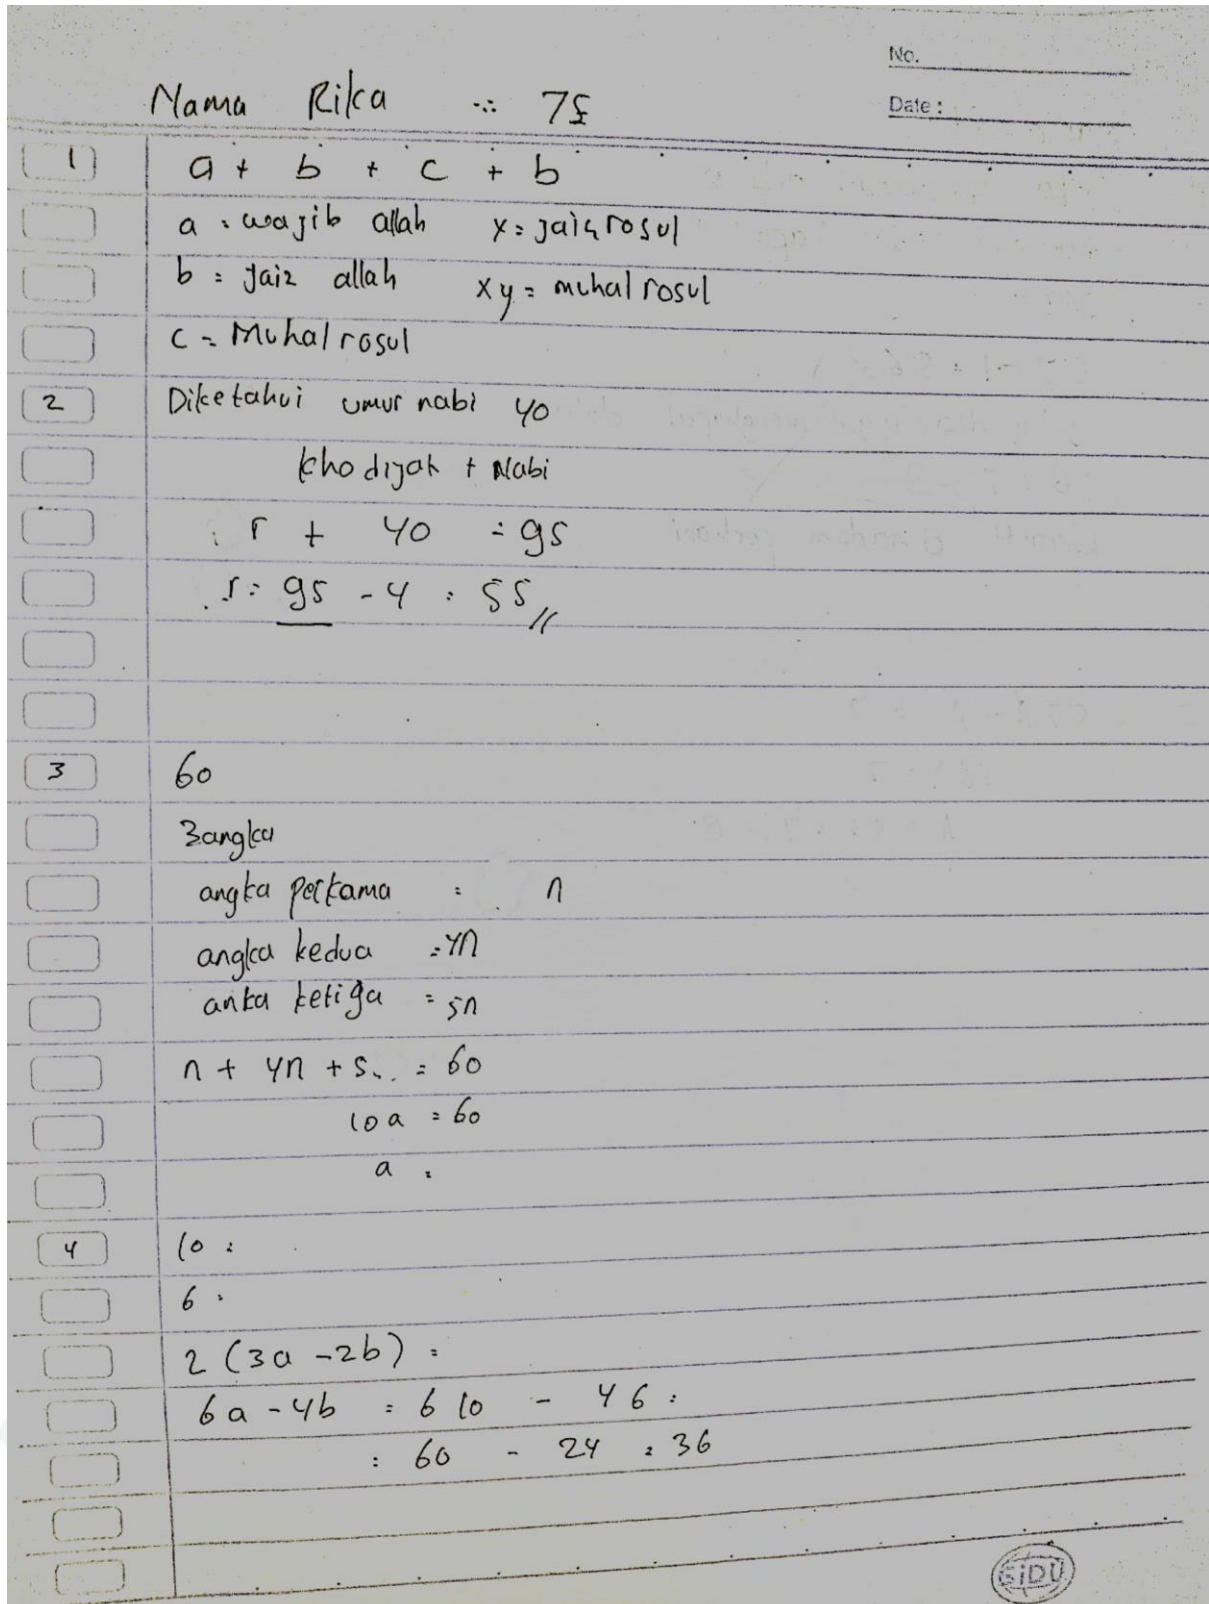 No.
Date :
Nama Rika 7
1 a + b + c + b
a : wajib allah x = jaiz rosul
b = Jaiz allah xy = muhal rosul
c = Muhal rosul
2 Diketahui umur nabi 40
khodijah + Nabi
r + 40 = 95
r = 95 - 4 : 55 //
3 60
3 angka
angka pertama : n
angka kedua = 4n
anka ketiga = 5n
n + 4n + 5.. = 60
10a = 60
a :
4 10 :
6 :
2 (3a - 2b) =
6a - 4b = 6 10 - 4 6 :
: 60 - 24 : 36
SiDU